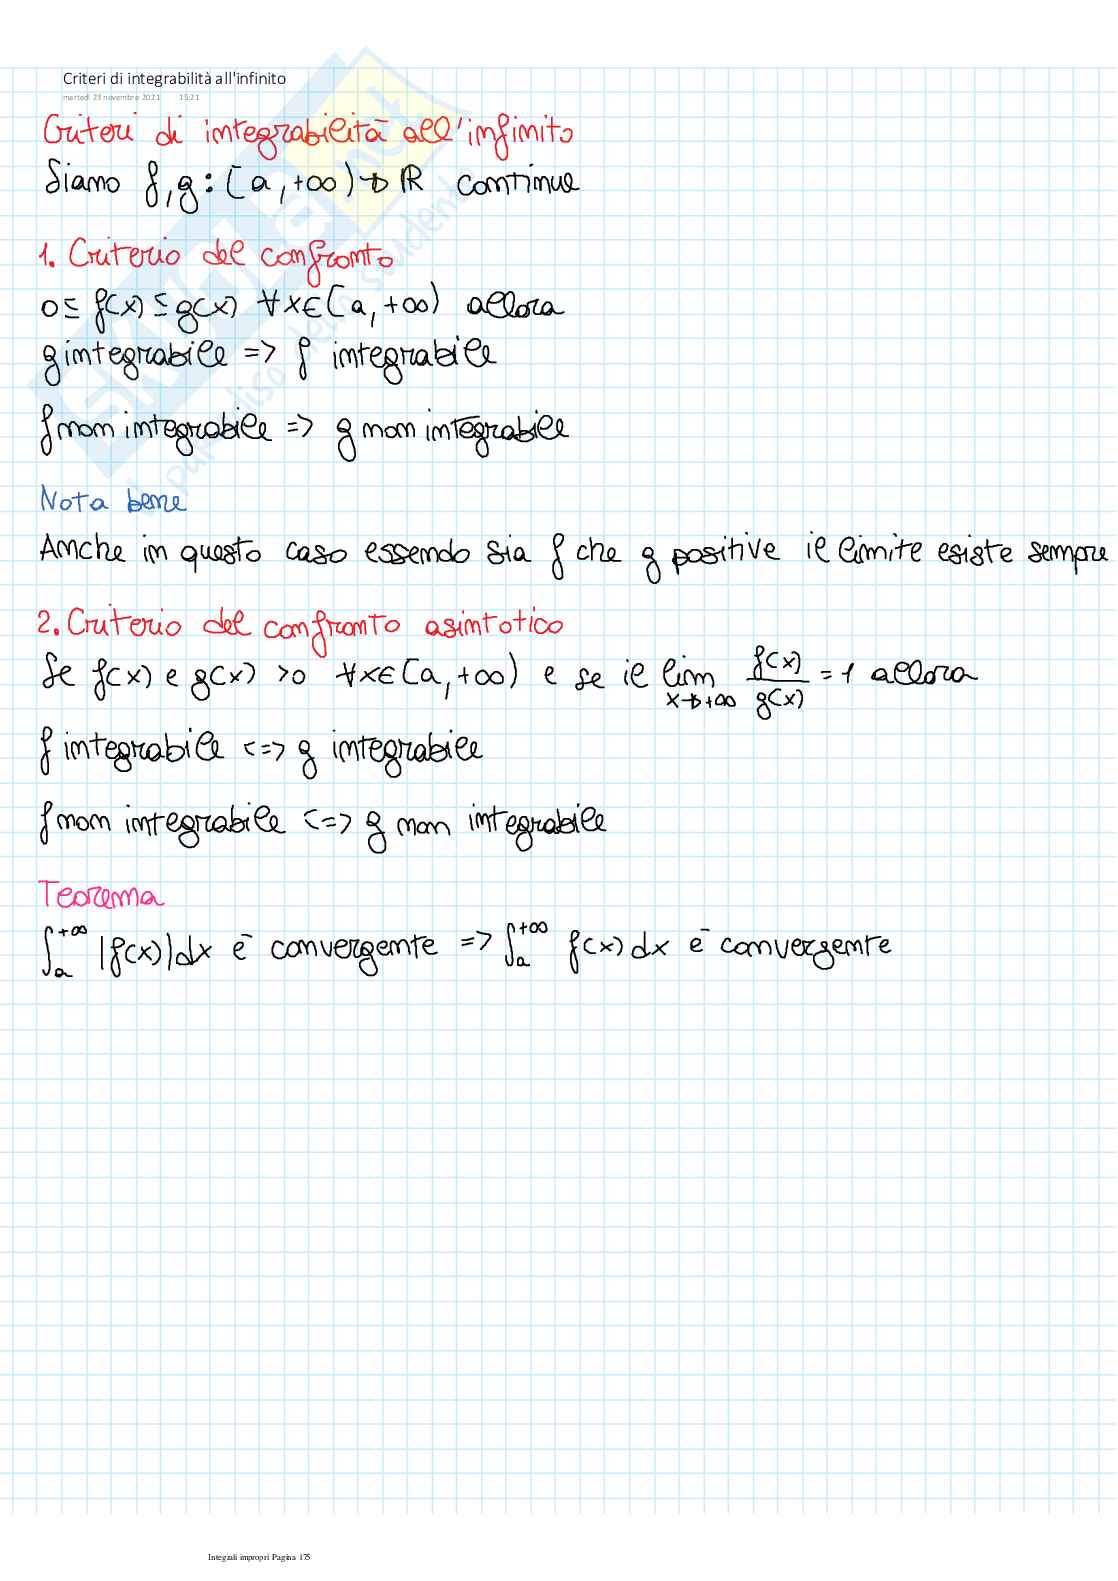 Criteri di integrabilità all'infinito
martedì 23 novembre 2021 15:21
Criteri di integrabilità all'infinito
Siano f, g : [a, +∞) → ℝ continue
1. Criterio del confronto
0 ≤ f(x) ≤ g(x) ∀x∈[a, +∞) allora
g integrabile => f integrabile
f non integrabile => g non integrabile
Nota bene
Anche in questo caso essendo sia f che g positive il limite esiste sempre
2. Criterio del confronto asintotico
Se f(x) e g(x) >0 ∀x∈[a, +∞) e se il lim x→+∞ f(x)/g(x) = 1 allora
f integrabile <=> g integrabile
f non integrabile <=> g non integrabile
Teorema
∫ₐ^+∞ |f(x)|dx è convergente => ∫ₐ^+∞ f(x) dx è convergente
Integrali impropri Pagina 175